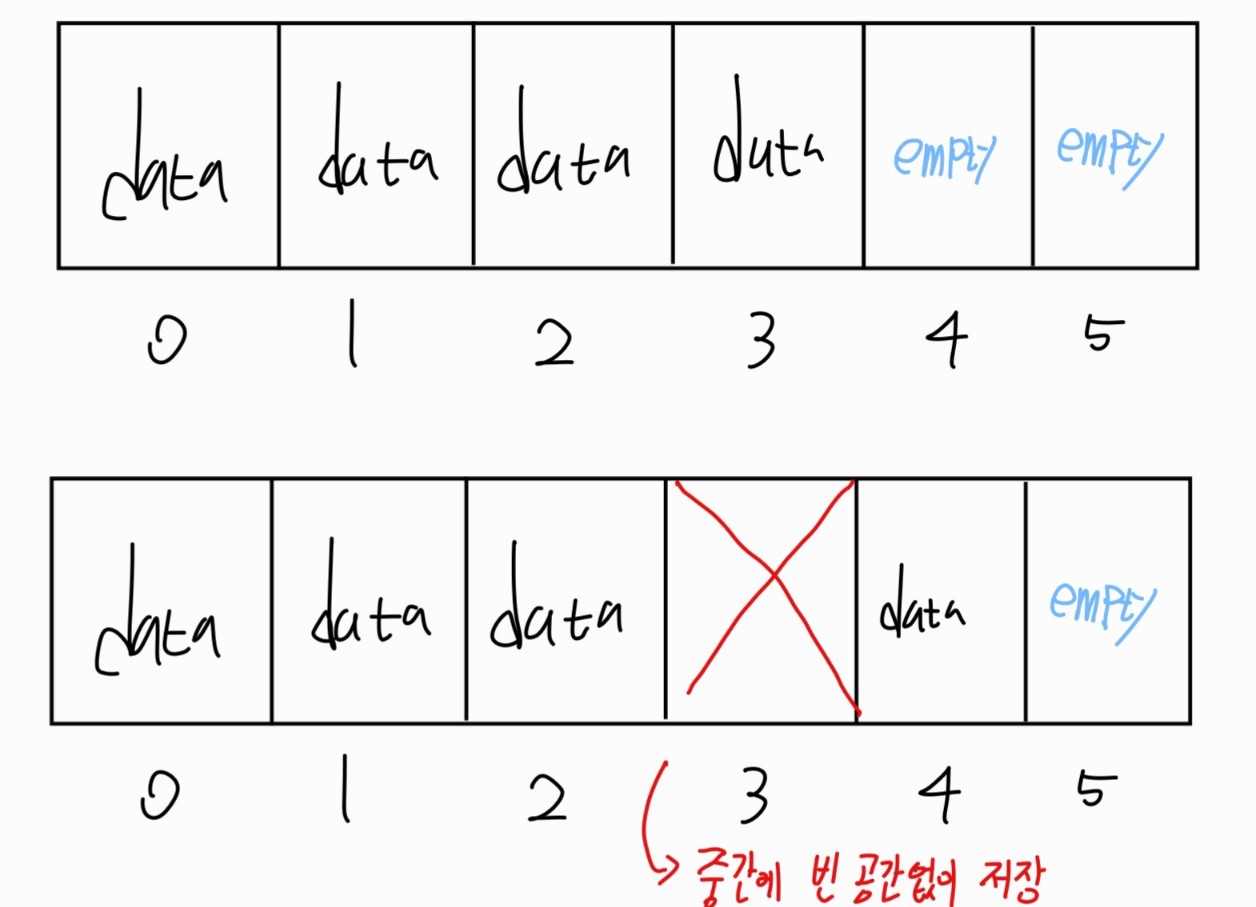 data data data data empty empty
0 1 2 3 4 5
data data data data empty
0 1 2 3 4 5
중간에 빈 공간없이 저장